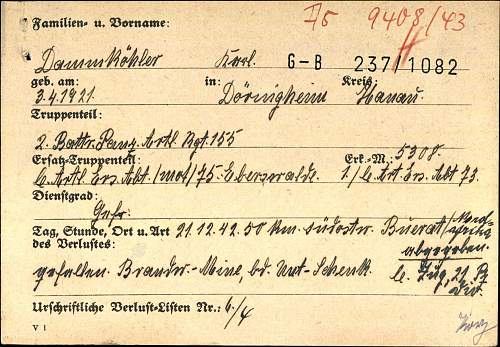 Familien- u. Vorname: Js 9408/43
Dammköhler Karl. G-B 237/1082
geb. am: in: Kreis:
3.4.1921. Dörnigheim Hanau.
Truppenteil:
2. Battr. Panz. Artl. Rgt. 155
Ersatz-Truppenteil: Erk.-M.: 5308.
l. Artl. Ers. Abt. /mot/ 75. Eberswalde. 1./ l. Art. Ers. Abt 73.
Dienstgrad:
Gefr.
Tag, Stunde, Ort u. Art 21.12.42. 50 km. südostw. Buerat/Nordafrika
des Verlustes: abgegeben
gefallen. Brandw.-Mine, bd. Unt.-Schenk. l. Zug, 21. Pz Div.
Urschriftliche Verlust-Listen Nr.: 6/4
V 1